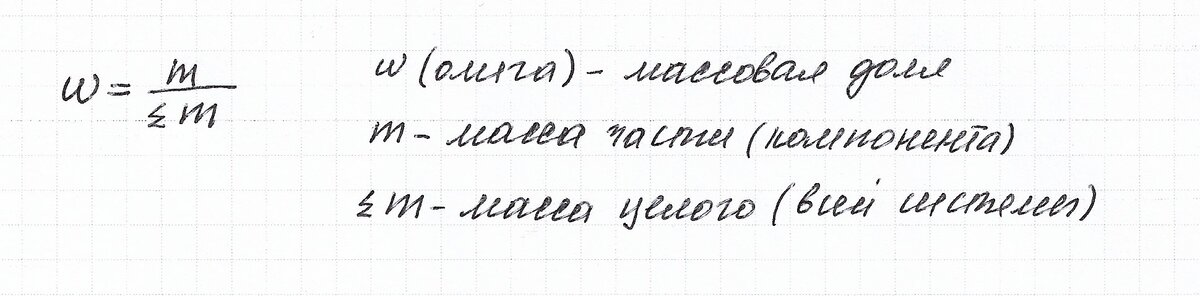 w = m / Σm
w (омега) – массовая доля
m – масса части (компонента)
Σm – масса целого (всей системы)